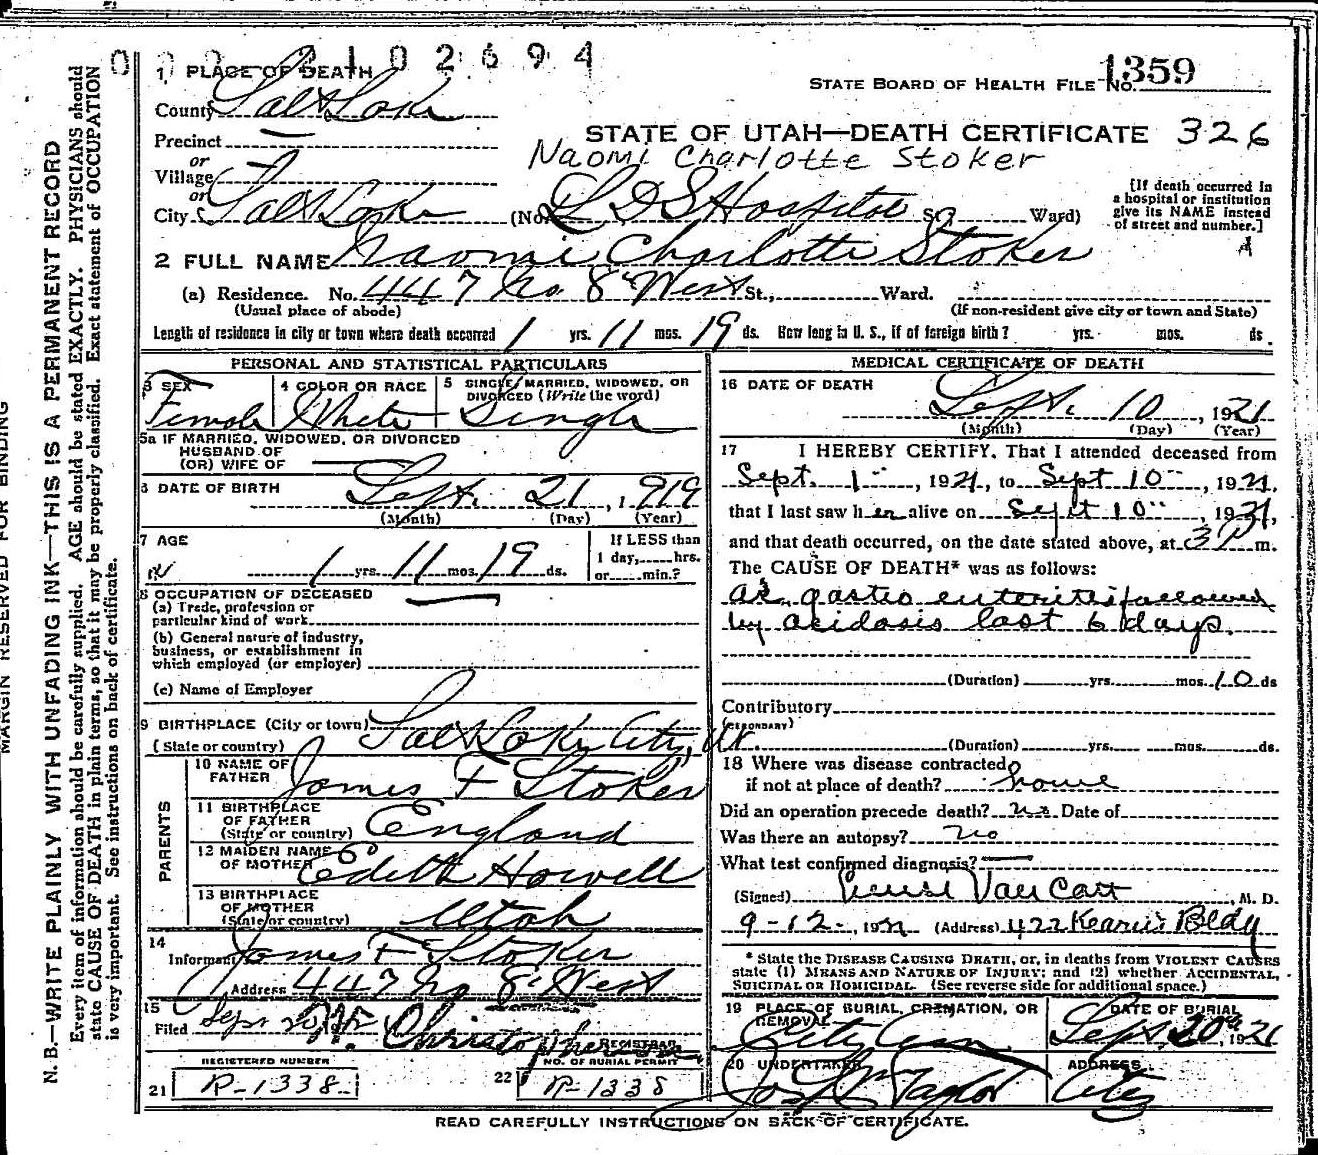 2102694
1 PLACE OF DEATH
STATE BOARD OF HEALTH FILE No. 1359
County Salt Lake
STATE OF UTAH—DEATH CERTIFICATE 326
Precinct
Naomi Charlotte Stoker
or
Village
or
City Salt Lake (No. L D S Hospital St., Ward)
[If death occurred in a hospital or institution give its NAME instead of street and number.]
2 FULL NAME Naomi Charlotte Stoker
(a) Residence. No. 447 No 8" West St., Ward.
(Usual place of abode) (If non-resident give city or town and State)
Length of residence in city or town where death occurred 1 yrs. 11 mos. 19 ds. How long in U. S., if of foreign birth? yrs. mos. ds.
PERSONAL AND STATISTICAL PARTICULARS
3 SEX Female
4 COLOR OR RACE White
5 SINGLE, MARRIED, WIDOWED, OR DIVORCED (Write the word) Single
5a IF MARRIED, WIDOWED, OR DIVORCED
HUSBAND OF
(OR) WIFE OF
6 DATE OF BIRTH Sept. 21, 1919
(Month) (Day) (Year)
7 AGE
1 yrs. 11 mos. 19 ds.
If LESS than
1 day, hrs.
or min.?
8 OCCUPATION OF DECEASED
(a) Trade, profession or
particular kind of work
(b) General nature of industry,
business, or establishment in
which employed (or employer)
(c) Name of Employer
9 BIRTHPLACE (City or town) Salt Lake City, Ut.
(State or country)
PARENTS
10 NAME OF
FATHER James F Stoker
11 BIRTHPLACE
OF FATHER
(State or country) England
12 MAIDEN NAME
OF MOTHER Edith Howell
13 BIRTHPLACE
OF MOTHER
(State or country) Utah
14
Informant James F Stoker
Address 447 No 8" West
15
Filed Sept 20
REGISTRAR
REGISTERED NUMBER
21 R-1338
NO. OF BURIAL PERMIT
22 R-1338
MEDICAL CERTIFICATE OF DEATH
16 DATE OF DEATH
Sept. 10, 1921
(Month) (Day) (Year)
17 I HEREBY CERTIFY, That I attended deceased from
Sept. 1, 1921, to Sept 10, 1921,
that I last saw her alive on Sept 10, 1921,
and that death occurred, on the date stated above, at 3 P m.
The CAUSE OF DEATH* was as follows:
gastro enteritis followed
by acidosis last 6 days.
(Duration) yrs. mos. 10 ds
Contributory
(SECONDARY)
(Duration) yrs. mos. ds.
18 Where was disease contracted
if not at place of death? home
Did an operation precede death? no Date of
Was there an autopsy? no
What test confirmed diagnosis?
(Signed) Van Cott, M. D.
9-12-, 1921 (Address) 422 Kearns Bldg
* State the DISEASE CAUSING DEATH, or, in deaths from VIOLENT CAUSES
state (1) MEANS AND NATURE OF INJURY; and (2) whether ACCIDENTAL,
SUICIDAL OR HOMICIDAL. (See reverse side for additional space.)
19 PLACE OF BURIAL, CREMATION, OR
REMOVAL
City Cem
DATE OF BURIAL
Sept. 20th, 1921
20 UNDERTAKER
Jos Wm Taylor
ADDRESS
City
READ CAREFULLY INSTRUCTIONS ON BACK OF CERTIFICATE.
MARGIN RESERVED FOR BINDING
N. B.—WRITE PLAINLY WITH UNFADING INK—THIS IS A PERMANENT RECORD
Every item of information should be carefully supplied. AGE should be stated EXACTLY. PHYSICIANS should
state CAUSE OF DEATH in plain terms, so that it may be properly classified. Exact statement of OCCUPATION
is very important. See instructions on back of certificate.